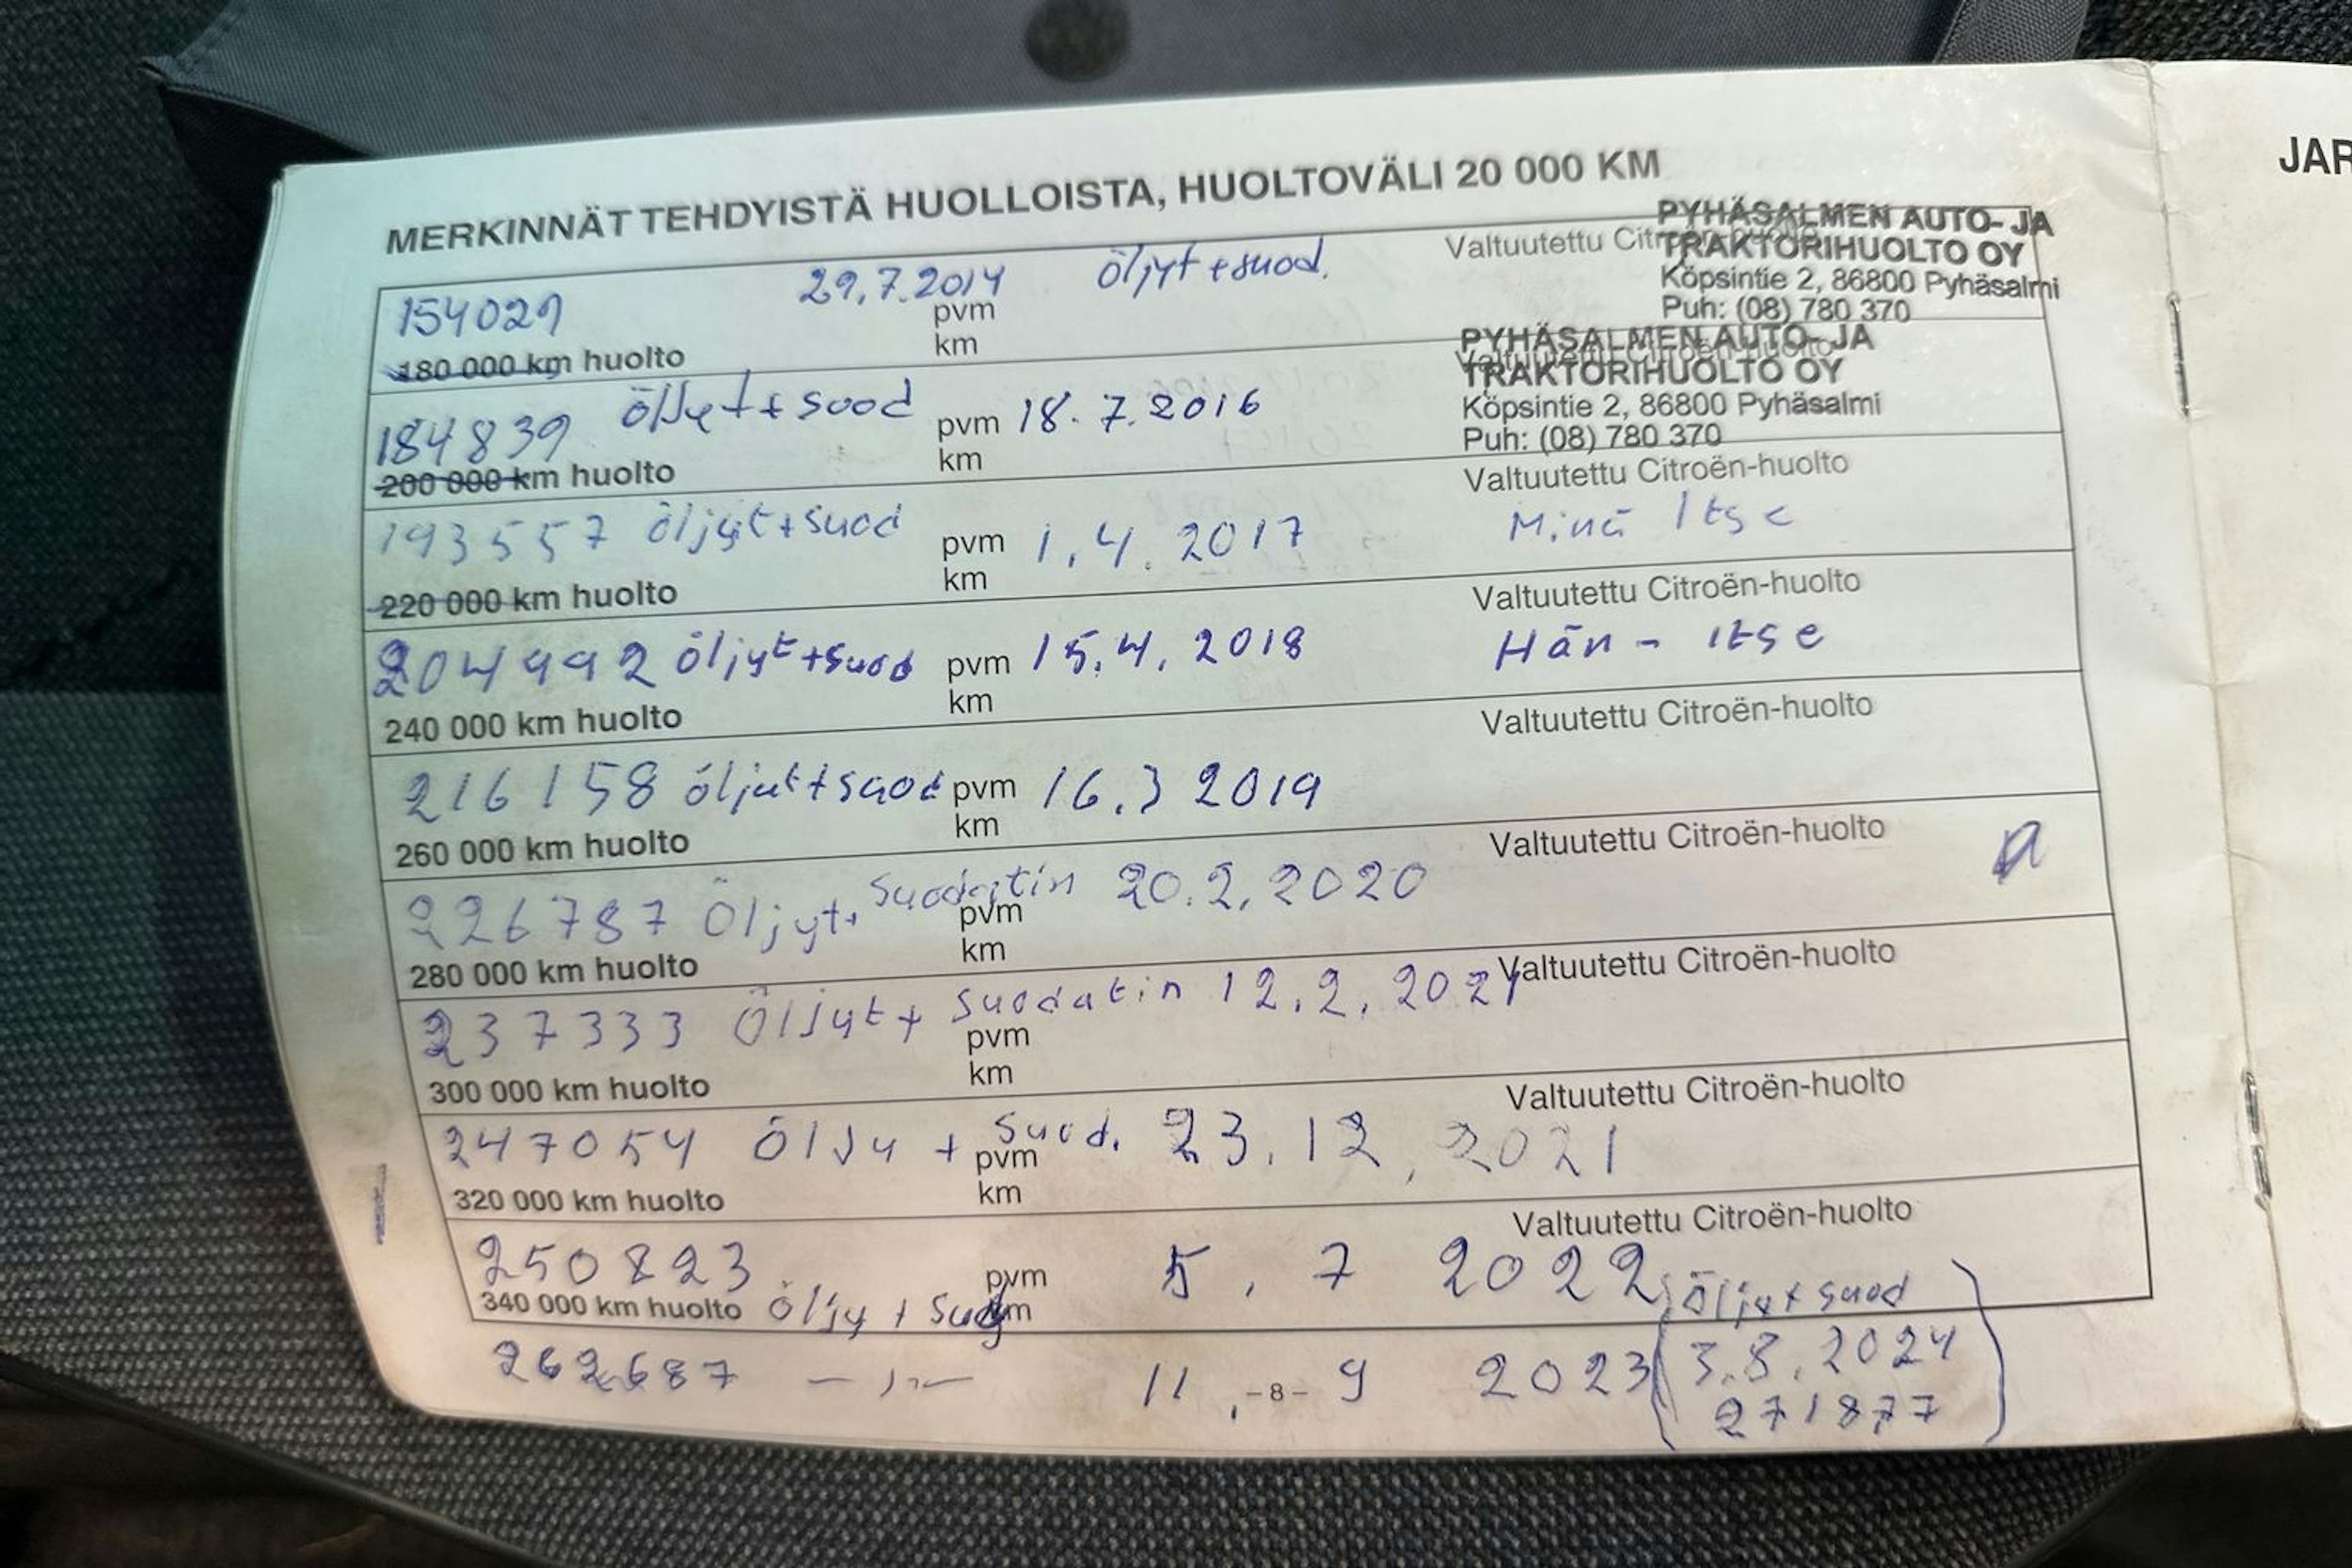 JAR
MERKINNÄT TEHDYISTÄ HUOLLOISTA, HUOLTOVÄLI 20 000 KM
154029 29.7.2014 öljyt+suod. Valtuutettu Citroën-huolto
PYHÄSALMEN AUTO- JA
TRAKTORIHUOLTO OY
Köpsintie 2, 86800 Pyhäsalmi
Puh: (08) 780 370
pvm
km
180 000 km huolto
184839 öljyt+suod pvm 18.7.2016 Valtuutettu Citroën-huolto
PYHÄSALMEN AUTO- JA
TRAKTORIHUOLTO OY
Köpsintie 2, 86800 Pyhäsalmi
Puh: (08) 780 370
km
200 000 km huolto
Valtuutettu Citroën-huolto
193557 öljyt+suod pvm 1.4.2017 Minä Itse
km
220 000 km huolto
Valtuutettu Citroën-huolto
204992 öljyt+suod pvm 15.4.2018 Hän - itse
km
240 000 km huolto
Valtuutettu Citroën-huolto
216158 öljyt+suod pvm 16.3 2019
km
260 000 km huolto
Valtuutettu Citroën-huolto
226787 Öljyt+ Suodatin 20.2.2020
pvm
km
280 000 km huolto
Valtuutettu Citroën-huolto
237333 Öljyt+ Suodatin 12.2.2021
pvm
km
300 000 km huolto
Valtuutettu Citroën-huolto
247054 Öljy + Suod. 23.12.2021
pvm
km
320 000 km huolto
Valtuutettu Citroën-huolto
250823 pvm 5.7 2022
340 000 km huolto öljy + suod km
öljyt suod
262687 —〃— 11.9 2023 3.8.2024
271877
-8-